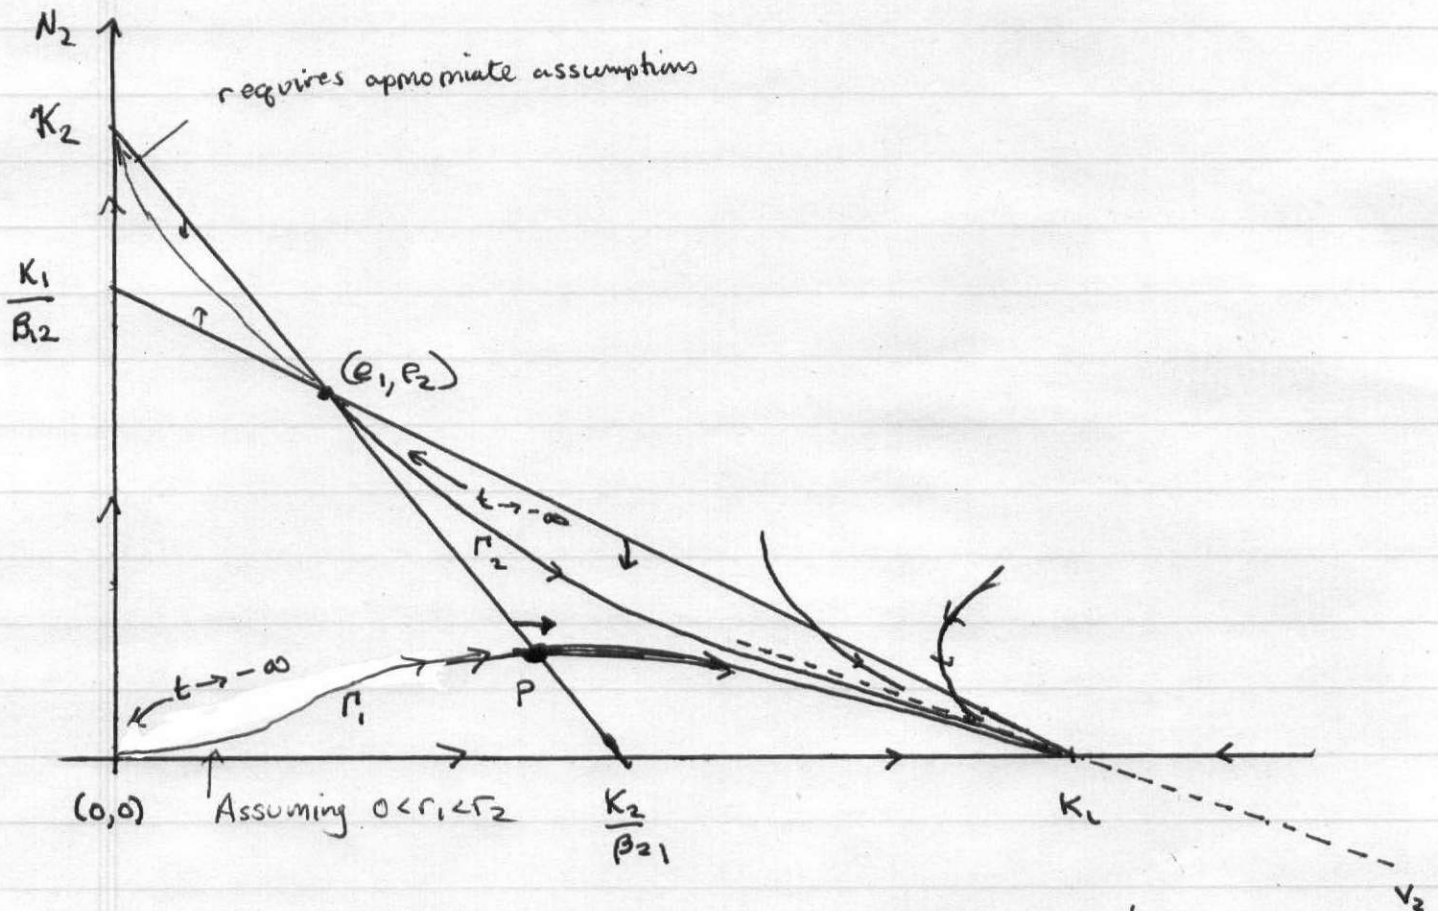 N₂
requires apnomiate asscumptions
K₂
K₁
β₁₂
(e₁, e₂)
t → -∞
Γ₂
t → -∞
P
Γ₁
(0,0)
Assuming 0<r₁<r₂
K₂
β₂₁
K₁
V₂